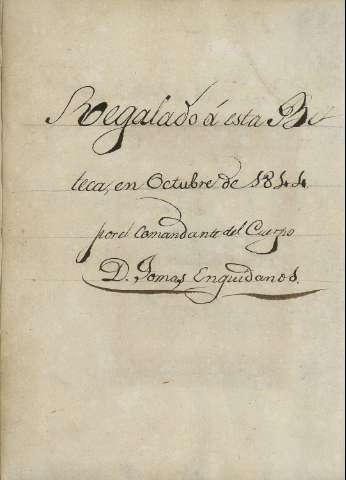 Regalado á esta Bi
teca, en Octubre de 1844.
por el Comandante del Cuerpo
D. Tomas Enguidanos.